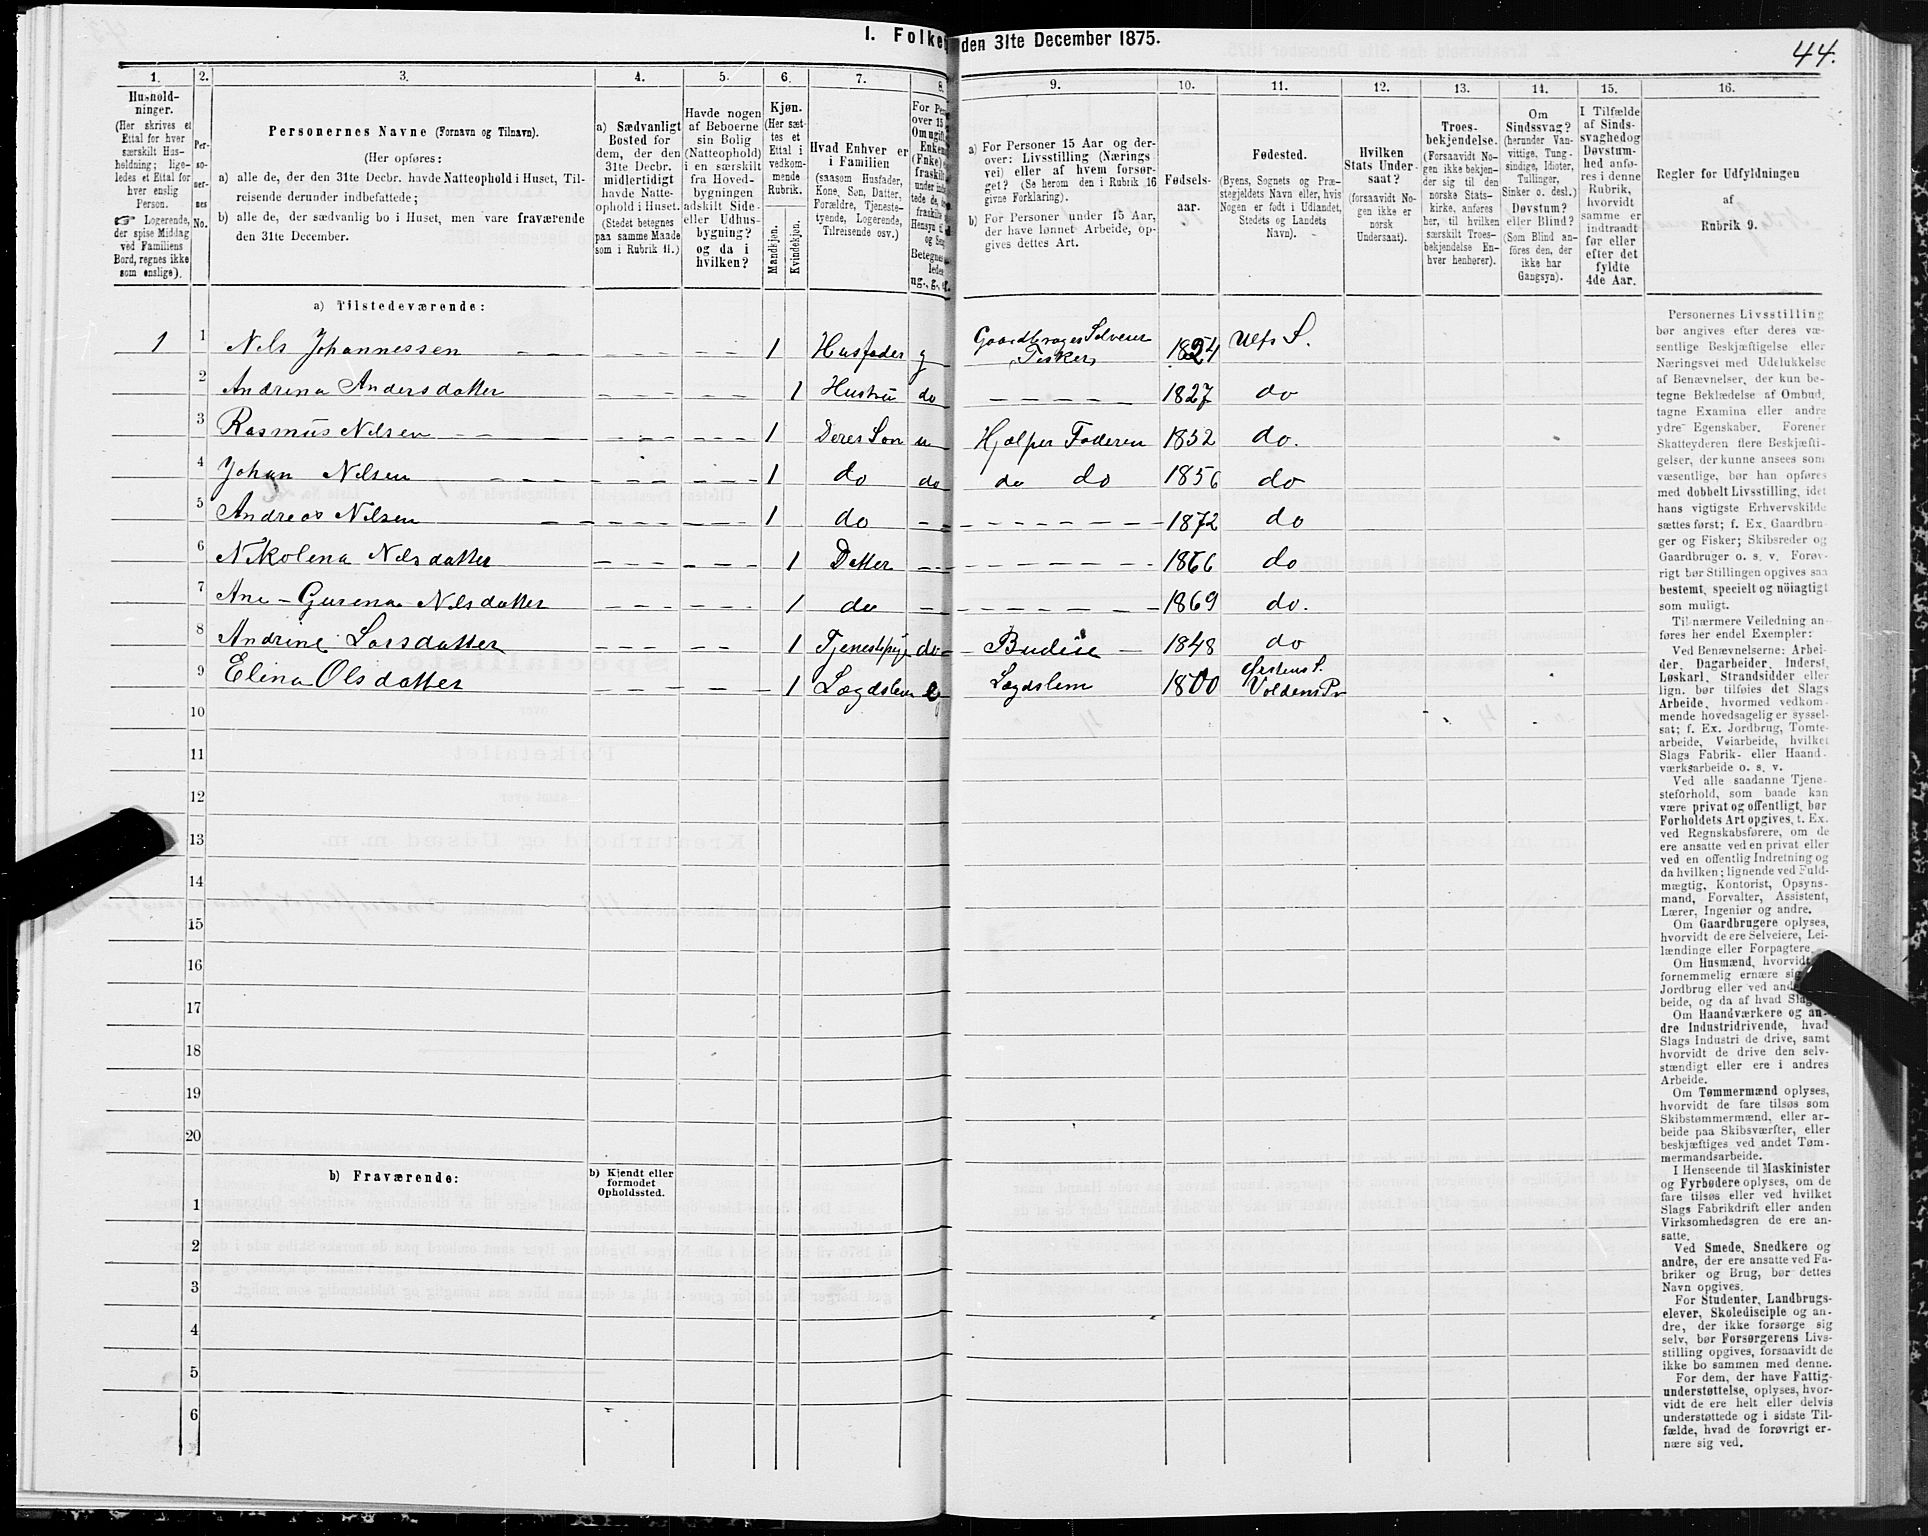 1. Folke den 31te December 1875.
44.
1. 2. 3. 4. 5. 6. 7. 8. 9. 10. 11. 12. 13. 14. 15. 16.
Hushold-
ninger.
(Her skrives et
Ettal for hver
særskilt Hus-
holdning; lige-
ledes et Ettal for
hver enslig
Person.
☞ Logerende,
der spise Middag
ved Familiens
Bord, regnes ikke
som enslige).
Per-
so-
ner-
nes
No.
Personernes Navne (Fornavn og Tilnavn).
(Her opføres:
a) alle de, der den 31te Decbr. havde Natteophold i Huset, Til-
reisende derunder indbefattede;
b) alle de, der sædvanlig bo i Huset, men vare fraværende
den 31te December.
a) Sædvanligt
Bosted for
dem, der den
31te Decbr.
midlertidigt
havde Natte-
ophold i Huset.
(Stedet betegnes
paa samme Maade
som i Rubrik 11.)
Havde nogen
af Beboerne
sin Bolig
(Natteophold)
i en særskilt
fra Hoved-
bygningen
adskilt Side-
eller Udhus-
bygning?
og da i
hvilken?
Kjøn.
(Her sæt-
tes et
Ettal i
vedkom-
mende
Rubrik.
Mandkjøn.
Kvindekjøn.
Hvad Enhver er
i Familien
(saasom Husfader,
Kone, Søn, Datter,
Forældre, Tjeneste-
tyende, Logerende,
Tilreisende osv.)
For Pe
over 15
Om ugift
Enkem
(Enke) e
fraskilt
ug., g., e
a) For Personer 15 Aar og der-
over: Livsstilling (Nærings-
vei) eller af hvem forsør-
get? (Se herom den i Rubrik 16
givne Forklaring.)
b) For Personer under 15 Aar,
der have lønnet Arbeide, op-
gives dettes Art.
Fødsels-
aar.
Fødested.
(Byens, Sognets og Præ-
stegjeldets Navn eller, hvis
Nogen er født i Udlandet,
Stedets og Landets
Navn).
Hvilken
Stats Under-
saat?
(forsaavidt No-
gen ikke er
norsk
Undersaat).
Troes-
bekjendelse.
(Forsaavidt No-
gen ikke beken-
der sig til den
norske Stats-
kirke, anføres
her, til hvilken
særskilt Troes-
bekjendelse En-
hver henhører).
Om
Sindssvag?
(herunder Van-
vittige, Tung-
sindige, Idioter,
Tullinger,
Sinker o. desl.)
Døvstum?
eller Blind?
(Som Blind an-
føres den, der
ikke har
Gangsyn).
I Tilfælde
af Sinds-
svaghed og
Døvstum-
hed anfø-
res i denne
Rubrik,
hvorvidt
samme er
indtraadt
før eller
efter det
fyldte
4de Aar.
Regler for Udfyldningen
af
Rubrik 9.
a) Tilstedeværende:
1 1 Nels Johannessen 1 Husfader g Gaardbruger Selveier Fisker 1824 Ulfs S.
2 Andrina Andersdatter 1 Hustru do 1827 do
3 Rasmus Nilsen 1 Deres Søn u Hjælper Faderen 1852 do.
4 Johan Nelsen 1 do do do do 1856 do
5 Andreas Nelsen 1 do 1872 do
6 Nikolena Nelsdatter 1 Datter 1866 do
7 Ane-Gurena Nelsdatter 1 do 1869 do.
8 Andrine Larsdatter 1 Tjenestepige do Budeie 1848 do
9 Elina Olsdatter 1 Lægdslem e Lægdslem 1800 Østens S. Voldens Pr
10
11
12
13
14
15
16
17
18
19
20
b) Fraværende:
b) Kjendt eller
formodet
Opholdssted.
1
2
3
4
5
6
Personernes Livsstilling
bør angives efter deres væ-
sentlige Beskjæftigelse eller
Næringsvei med Udelukkelse
af Benævnelser, der kun be-
tegne Beklædelse af Ombud,
tagne Examina eller andre
ydre Egenskaber. Forener
Skatteyderen flere Beskjæfti-
gelser, der kunne ansees som
væsentlige, bør han opføres
med dobbelt Livsstilling, idet
hans vigtigste Erhvervskilde
sættes først; f. Ex. Gaardbru-
ger og Fisker; Skibsreder og
Gaardbruger o. s. v. Forøv-
rigt bør Stillingen opgives saa
bestemt, specielt og nöiagtigt
som muligt.
Til nærmere Veiledning an-
føres her endel Exempler:
Ved Benævnelserne: Arbei-
der, Dagarbeider, Inderst,
Løskarl, Strandsidder eller
lign. bør tilføies det Slags
Arbeide, hvormed vedkom-
mende hovedsagelig er syssel-
sat; f. Ex. Jordbrug, Tomte-
arbeide, Veiarbeide, hvilket
Slags Fabrik- eller Haand-
værksarbeide o. s. v.
Ved alle saadanne Tjene-
steforhold, som baade kan
være privat og offentligt, bør
Forholdets Art opgives, t. Ex.
ved Regnskabsførere, om de
ere ansatte ved en privat eller
ved en offentlig Indretning og
da hvilken; lignende ved Fuld-
mægtig, Kontorist, Opsyns-
mand, Forvalter, Assistent,
Lærer, Ingeniør og andre.
Om Gaardbrugere oplyses,
hvorvidt de ere Selveiere, Lei-
lændinge eller Forpagtere.
Om Husmænd, hvorvidt
fornemmelig ernære sig
Jordbrug eller ved and
beide, og da af hvad Slag
Om Haandværkere og an-
dre Industridrivende, hvad
Slags Industri de drive, samt
hvorvidt de drive den selv-
stændigt eller ere i andres
Arbeide.
Om Tømmermænd oplyses,
hvorvidt de fare tilsøs som
Skibstømmermænd, eller ar-
beide paa Skibsværfter, eller
beskjæftiges ved andet Tøm-
mermandsarbeide.
I Henseende til Maskinister
og Fyrbødere oplyses, om de
fare tilsøs eller ved hvilket
Slags Fabrikdrift eller anden
Virksomhedsgren de ere an-
satte.
Ved Smede, Snedkere og
andre, der ere ansatte ved Fa-
briker og Brug, bør dettes
Navn opgives.
For Studenter, Landbrugs-
elever, Skoledisciple og an-
dre, der ikke forsørge sig
selv, bør Forsørgerens Livs-
stilling opgives, forsaavidt de
ikke bo sammen med denne.
For dem, der have Fattig-
understøttelse, oplyses, hvor-
vidt de ere helt eller delvis
understøttede og i sidste Til-
fælde, hvad de forøvrigt er-
nære sig ved.